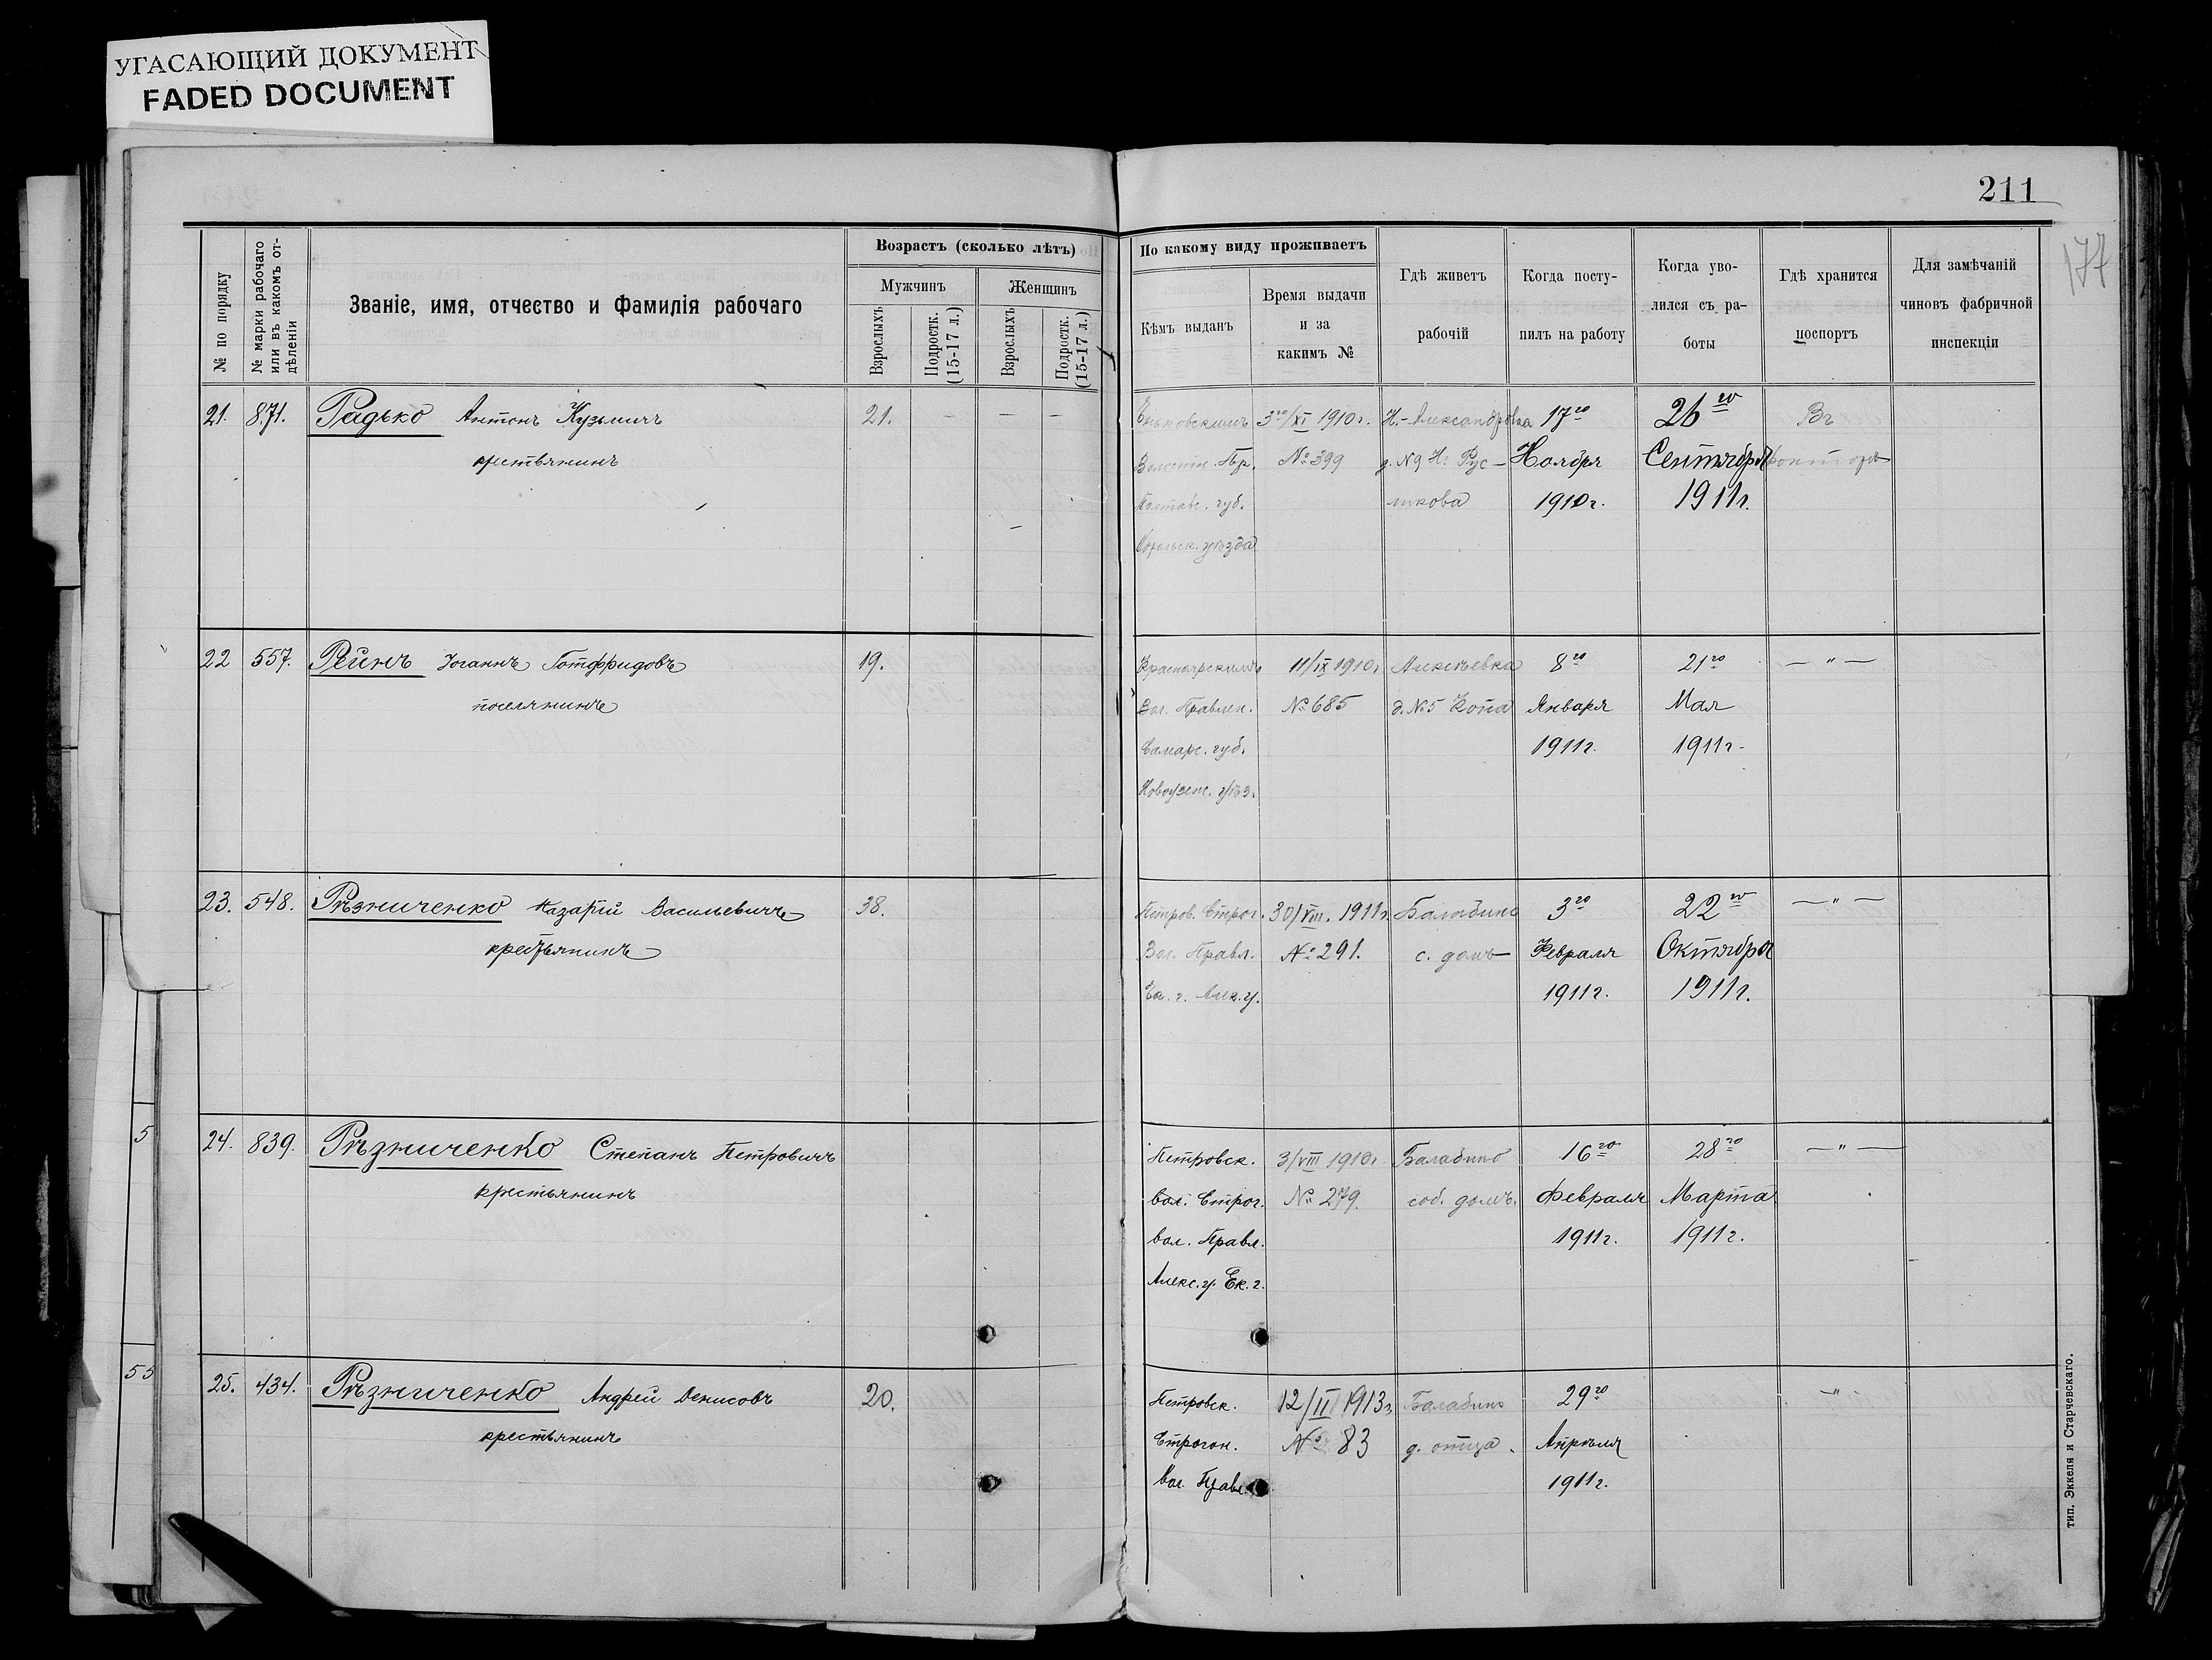 УГАСАЮЩИЙ ДОКУМЕНТ
FADED DOCUMENT
211
177
№ по порядку
№ марки рабочаго или въ какомъ отдѣленіи
Званіе, имя, отчество и фамилія рабочаго
Возрастъ (сколько лѣтъ)
Мужчинъ
Женщинъ
Взрослыхъ
Подростк. (15-17 л.)
Взрослыхъ
Подростк. (15-17 л.)
По какому виду проживаетъ
Кѣмъ выданъ
Время выдачи
и за
какимъ №
Гдѣ живетъ
рабочій
Когда посту-
пилъ на работу
Когда уво-
лился съ ра-
боты
Гдѣ хранится
поспортъ
Для замѣчаній
чиновъ фабричной
инспекціи
21. 871. Радько Антонъ Кузьмичъ 21. — — — 3го/XI 1910г. Н.-Александровка 17го 26го Въ
крестьянинъ Волостн. Пр. № 399 д. №9 Н. Рус- Ноября Сентября конторѣ
Полтавс. губ. ликова 1910г. 1911г.
уѣзда
22 557. Рейнъ Іоганнъ Готфридовъ 19. Красноярскимъ 11/IX 1910г Алексѣевка 8го 21го — " —
поселянинъ Вол. Правлен. № 685 д. №5 Копа Января Мая
Самарс. губ. 1911г. 1911г.
Новоузен. уѣз.
23. 548. Рѣзниченко Назарій Васильевичъ 38. Петров. Строг. 30/VIII. 1911г. Балабино 3го 22го — " —
крестьянинъ Вол. Правл. № 291. с. домъ Февраля Октября
Ек. г. Алек. у. 1911г. 1911г.
24. 839. Рѣзниченко Степанъ Петровичъ Петровск. 3/VIII 1910г Балабино 16го 28го — " —
крестьянинъ вол. Строг. № 279. соб. домъ. Февраля Марта
вол. Правл. 1911г. 1911г.
Алекс. у. Ек. г.
25. 434. Рѣзниченко Андрей Денисовъ 20. Петровск. 12/II 1913г. Балабино 29го — " -
крестьянинъ Строгон. № 83 д. отца. Апрѣля
Вол. Правл. 1911г.
5
55
тип. Эккеля и Старчевскаго.